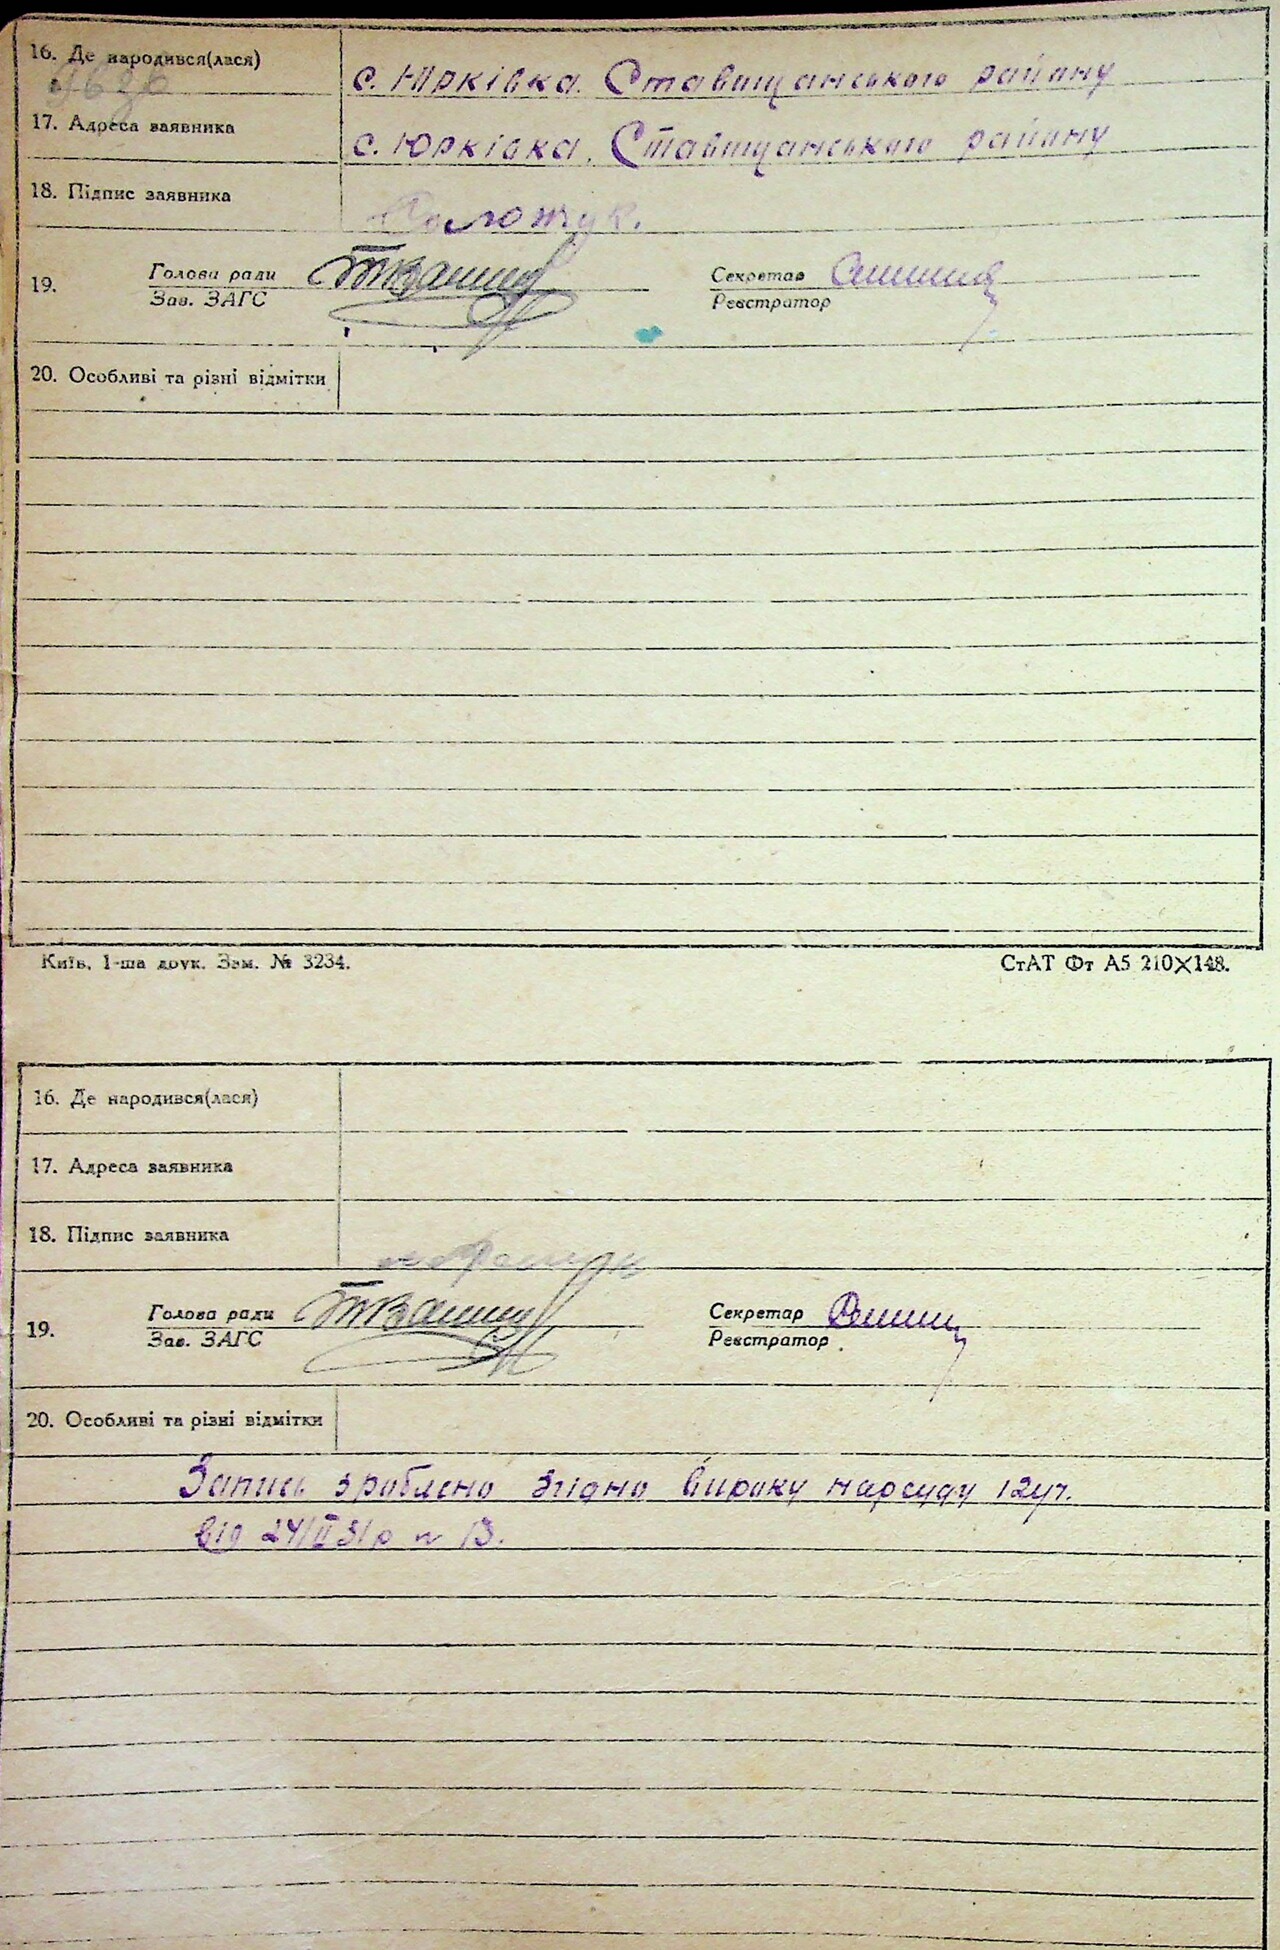 16. Де народився(лася) с. Юрківка. Ставищанського району
17. Адреса заявника с. Юрківка. Ставищанського району
18. Підпис заявника
19. Голова ради Секретар
Зав. ЗАГС Реєстратор
20. Особливі та різні відмітки
Київ, 1-ша друк. Зам. № 3234. СтАТ Фт А5 210×148.
16. Де народився(лася)
17. Адреса заявника
18. Підпис заявника
19. Голова ради Секретар
Зав. ЗАГС Реєстратор
20. Особливі та різні відмітки
Запись зроблено згідно вироку нарсуду 12уч.
від 24/II 31р № 13.